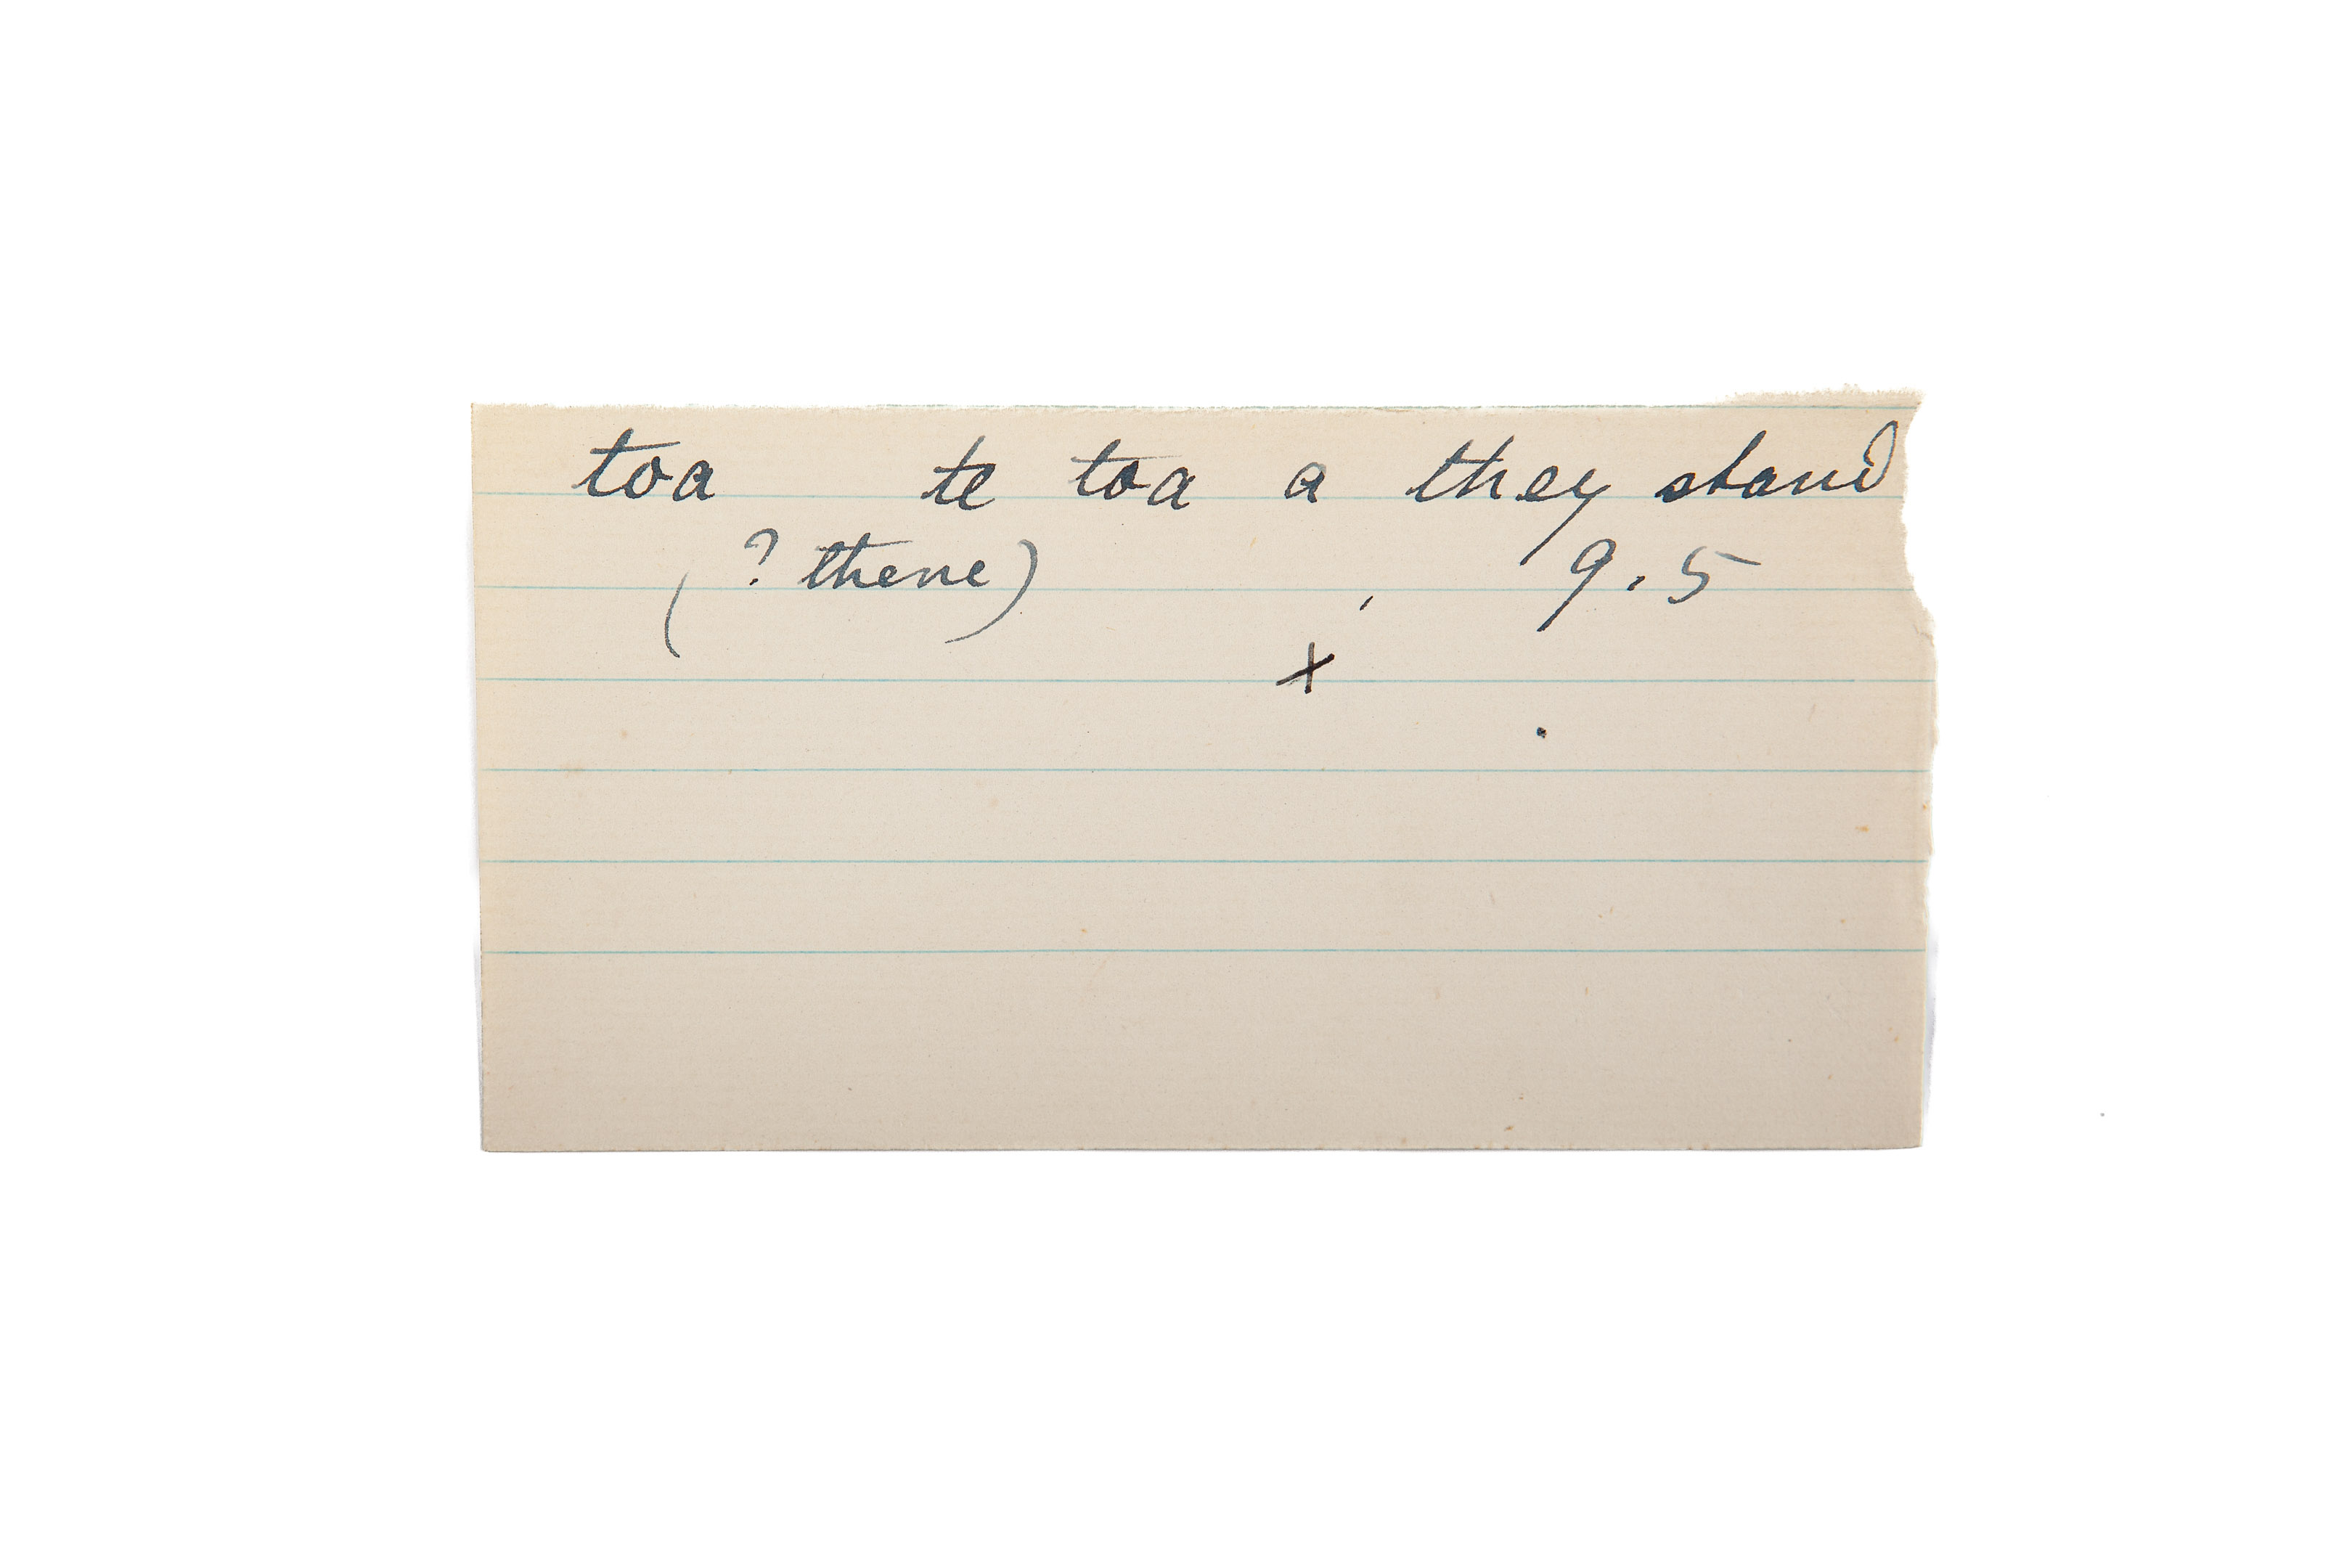 toa te toa a they stand
(? there) 9.5
x